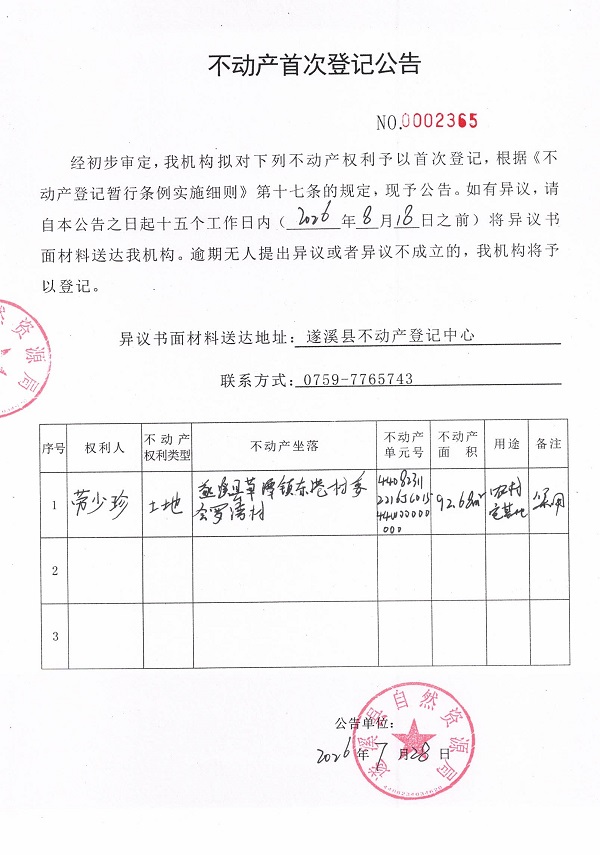 不动产首次登记公告
NO.0002365
经初步审定，我机构拟对下列不动产权利予以首次登记，根据《不
动产登记暂行条例实施细则》第十七条的规定，现予公告。如有异议，请
自本公告之日起十五个工作日内（2026年8月18日之前）将异议书
面材料送达我机构。逾期无人提出异议或者异议不成立的，我机构将予
以登记。
异议书面材料送达地址：遂溪县不动产登记中心
联系方式：0759-7765743
序号 权利人 不动产权利类型 不动产坐落 不动产单元号 不动产面积 用途 备注
1 劳少珍 土地 遂溪县草潭镇东港村委会罗湾村 92.68㎡ 农村宅基地
2
3
公告单位：
2026年7月28日
遂溪县自然资源局
然资源局